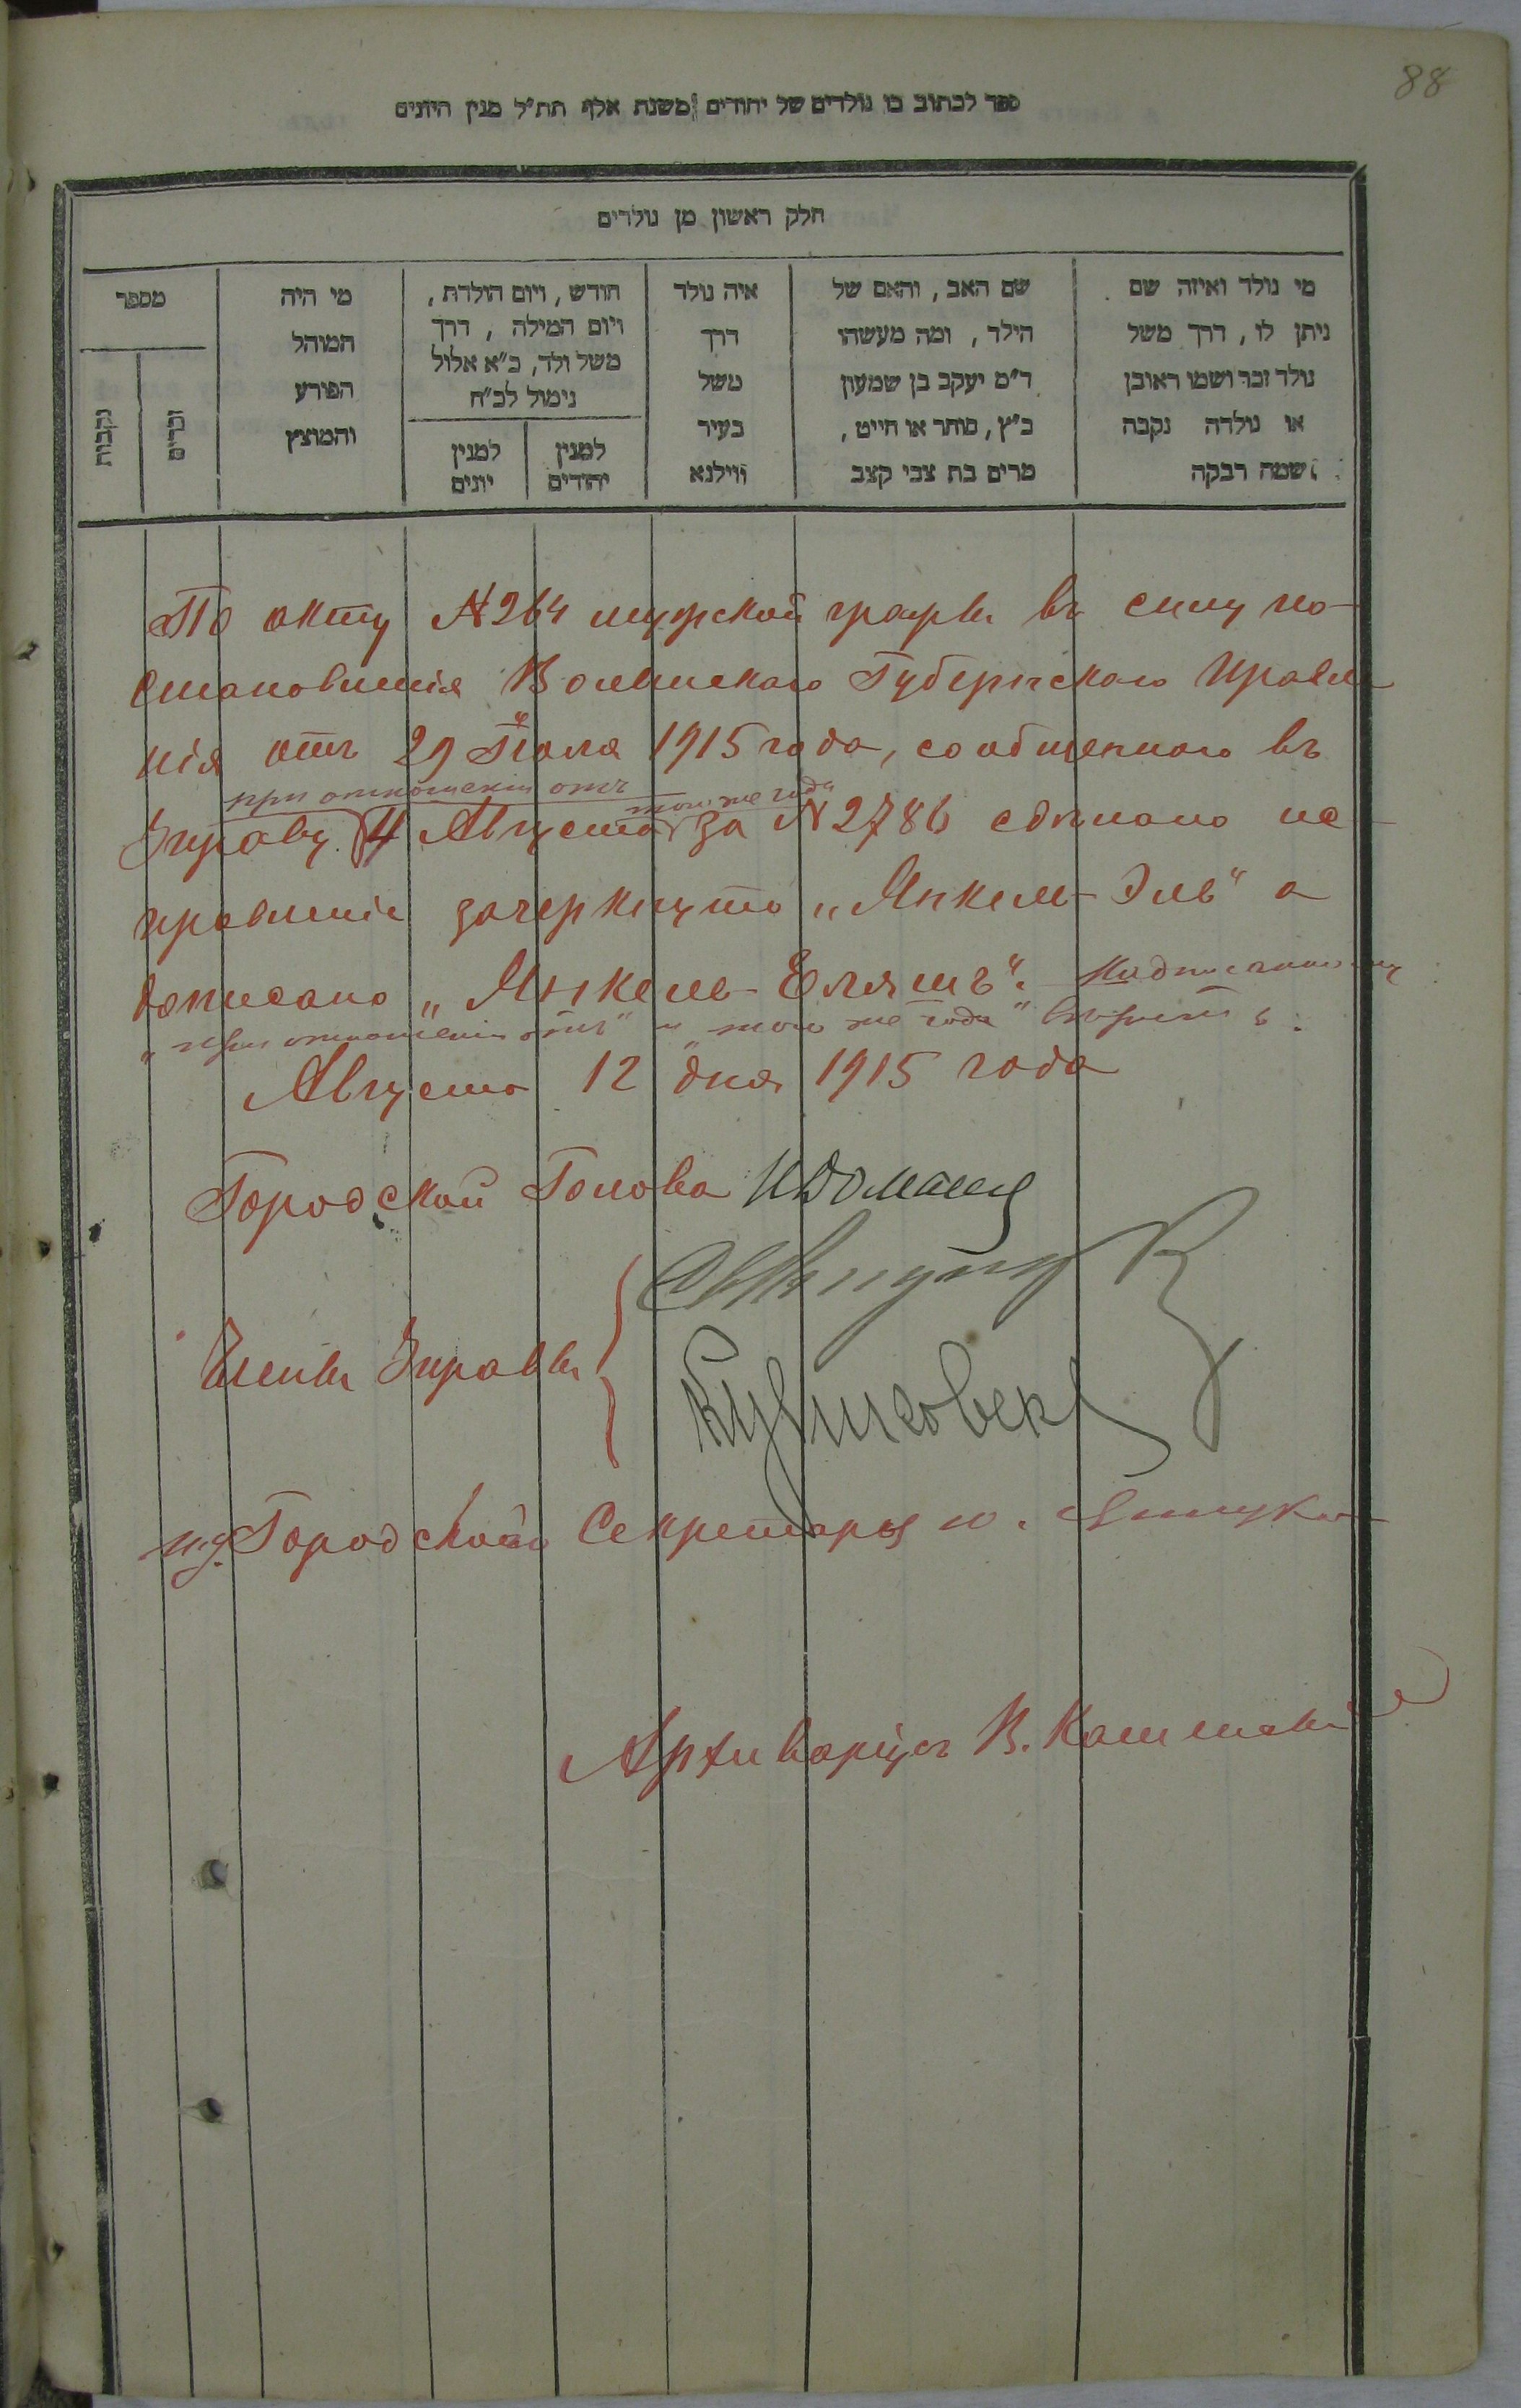 88
ספר לכתוב בו נולדים של יהודים משנת אלף תת״ל מנין היונים
חלק ראשון מן נולדים
מי נולד ואיזה שם
ניתן לו, דרך משל
נולד זכר ושמו ראובן
או נולדה נקבה
ושמה רבקה
שם האב, והאם של
הילד, ומה מעשהו
ד״מ יעקב בן שמעון
כ״ץ, סוחר או חייט,
מרים בת צבי קצב
איה נולד
דרך
משל
בעיר
ווילנא
חודש, ויום הולדת,
ויום המילה, דרך
משל ולד, כ״א אלול
נימול לכ״ח
למנין
יהודים
למנין
יונים
מי היה
המוהל
הפורע
והמוצץ
מספר
זכרים
נקבות
По акту № 264 мужской графы въ силу по-
становленія Волынскаго Губернскаго Правле
нія отъ 29 Іюля 1915 года, сообщеннаго въ
при отношеніи отъ того же года
Управу 4 Августа за № 2786 сдѣлано ис-
правленіе зачеркнуто „Янкель-Эль“ а
дописано „Янкель-Еляшъ“. Надписанному
„при отношеніи отъ“ и „того же года“ вѣрить.
Августа 12 дня 1915 года
Городской Голова
Члены Управы
и.д. Городского Секретаря
Архиваріусъ В.